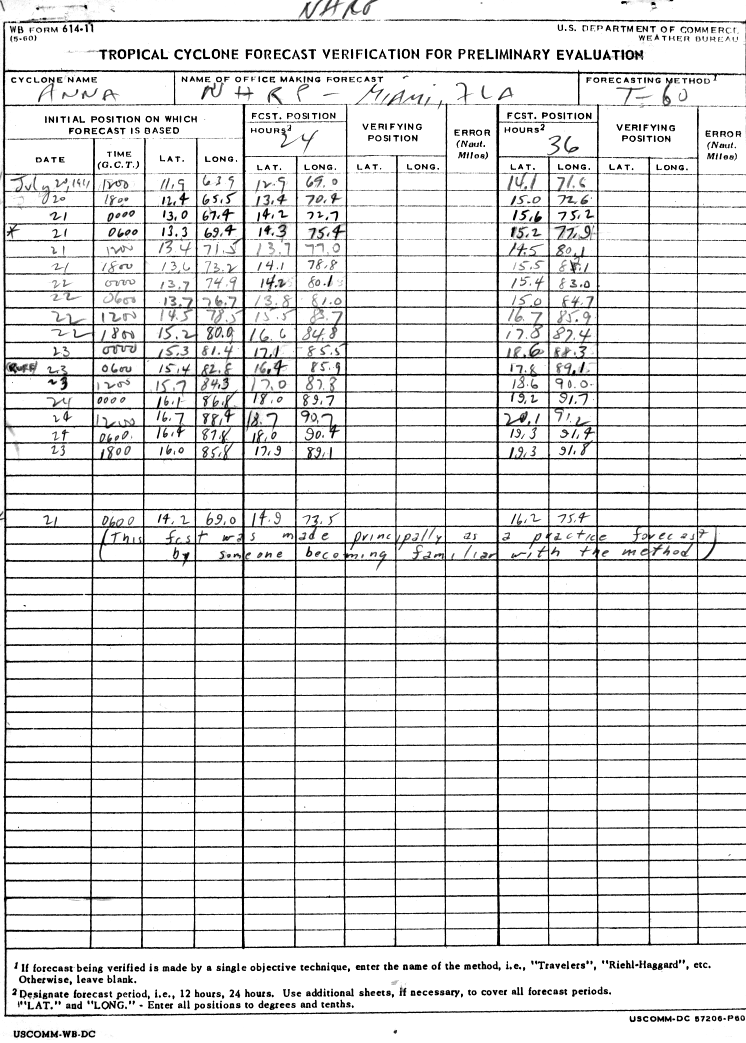 NHRP
WB FORM 614-11
(5-60)
U.S. DEPARTMENT OF COMMERCE
WEATHER BUREAU
TROPICAL CYCLONE FORECAST VERIFICATION FOR PRELIMINARY EVALUATION
CYCLONE NAME NAME OF OFFICE MAKING FORECAST FORECASTING METHOD1
ANNA NHRP - MIAMI, FLA T-60
INITIAL POSITION ON WHICH FORECAST IS BASED FCST. POSITION HOURS2 24 VERIFYING POSITION ERROR (Naut. Miles) FCST. POSITION HOURS2 36 VERIFYING POSITION ERROR (Naut. Miles)
DATE TIME (G.C.T.) LAT. LONG. LAT. LONG. LAT. LONG. LAT. LONG. LAT. LONG.
July 20, 1961 1200 11.9 63.9 12.9 69.0 14.1 71.6
20 1800 12.4 65.5 13.4 70.4 15.0 72.6
21 0000 13.0 67.4 14.2 72.7 15.6 75.2
* 21 0600 13.3 69.4 14.3 75.4 15.2 77.9
21 1200 13.4 71.5 13.7 77.0 14.5 80.1
21 1800 13.6 73.2 14.1 78.8 15.5 1
22 0000 13.7 74.9 14.2 80.1 15.4 83.0
22 0600 13.7 76.7 13.8 81.0 15.0 84.7
22 1200 14.5 78.5 15.5 83.7 16.7 85.9
22 1800 15.2 80.0 16.6 84.8 17.8 87.4
23 0000 15.3 81.4 17.1 85.5 18.6 88.3
23 0600 15.4 82.8 16.4 85.9 17.8 89.1
23 1200 15.7 84.3 17.0 87.8 18.6 90.0
24 0000 16.1 86.8 18.0 89.7 19.2 91.7
24 1200 16.7 88.4 18.7 90.7 20.1 91.2
24 0600 16.4 87.8 18.0 90.4 19.3 91.4
23 1800 16.0 85.8 17.9 89.1 19.3 91.8
21 0600 14.2 69.0 14.9 73.5 16.2 75.4
(This fcst was made principally as a practice forecast
by someone becoming familiar with the method)
1 If forecast being verified is made by a single objective technique, enter the name of the method, i.e., "Travelers", "Riehl-Haggard", etc.
Otherwise, leave blank.
2 Designate forecast period, i.e., 12 hours, 24 hours. Use additional sheets, if necessary, to cover all forecast periods.
"LAT." and "LONG." - Enter all positions to degrees and tenths.
USCOMM-DC 67206-P60
USCOMM-WB-DC